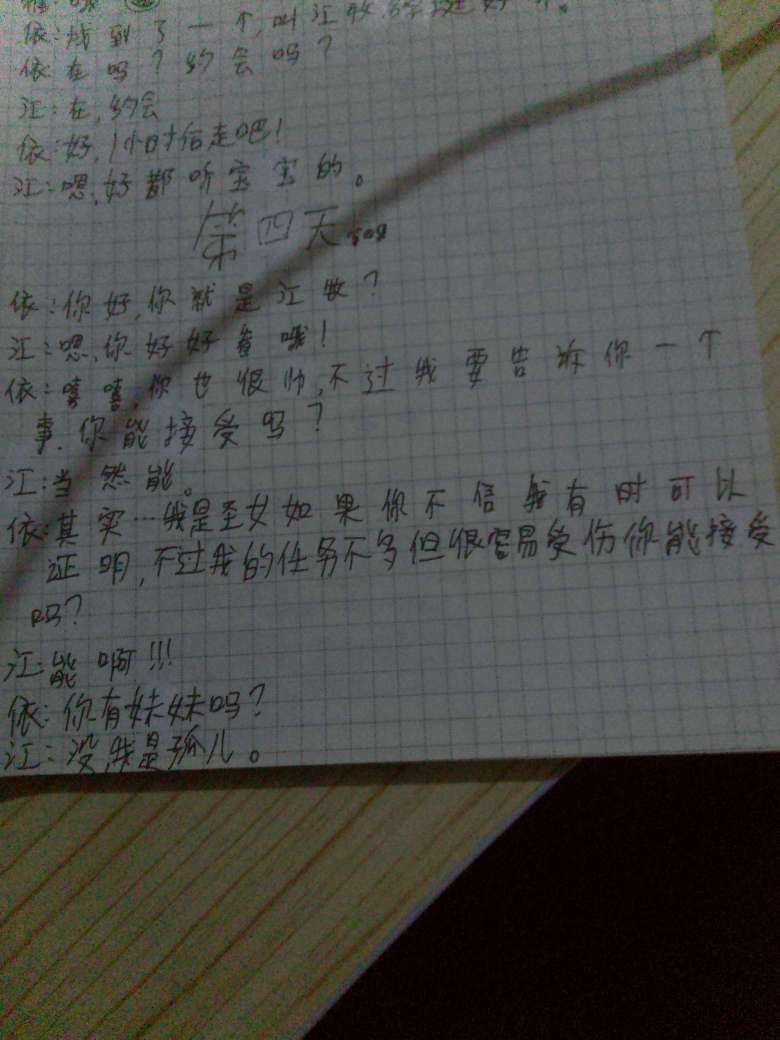 依:找到了一个,叫江牧,
依:在吗?约会吗?
江:在,约会
依:好,1小时后走吧!
江:嗯,好都听宝宝的。
第四天
依:你好,你就是江牧?
江:嗯,你好好看哦!
依:嘻嘻,你也很帅,不过我要告诉你一个
事,你能接受吗?
江:当然能。
依:其实…我是圣女如果你不信我有时可以
证明,不过我的任务不多但很容易受伤你能接受
吗?
江:能啊!!!
依:你有妹妹吗?
江:没,我是孤儿。